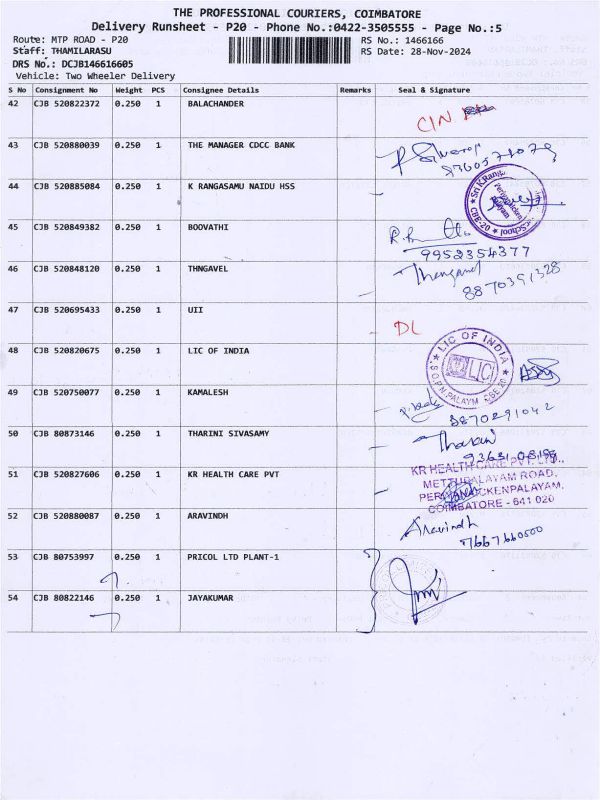 THE PROFESSIONAL COURIERS, COIMBATORE
Delivery Runsheet - P20 - Phone No.:0422-3505555 - Page No.:5
Route: MTP ROAD - P20
RS No.: 1466166
Staff: THAMILARASU
RS Date: 28-Nov-2024
DRS No.: DCJB146616605
Vehicle: Two Wheeler Delivery
S No Consignment No Weight PCS Consignee Details Remarks Seal & Signature
42 CJB 520822372 0.250 1 BALACHANDER
C/N
43 CJB 520880039 0.250 1 THE MANAGER CDCC BANK
44 CJB 520885084 0.250 1 K RANGASAMU NAIDU HSS
CBE-20
45 CJB 520849382 0.250 1 BOOVATHI
9952354377
46 CJB 520848120 0.250 1 THNGAVEL
Thangavel
8870391328
47 CJB 520695433 0.250 1 UII
DL
48 CJB 520820675 0.250 1 LIC OF INDIA
LIC OF INDIA
LIC
S.O.P.N.PALAYM CBE-20
49 CJB 520750077 0.250 1 KAMALESH
8870291042
50 CJB 80873146 0.250 1 THARINI SIVASAMY
51 CJB 520827606 0.250 1 KR HEALTH CARE PVT
KR HEALTH CARE PVT. LTD.,
METTUPALAYAM ROAD,
PERIYANAICKENPALAYAM,
COIMBATORE - 641 020
52 CJB 520880087 0.250 1 ARAVINDH
Aravindh
7667660500
53 CJB 80753997 0.250 1 PRICOL LTD PLANT-1
54 CJB 80822146 0.250 1 JAYAKUMAR